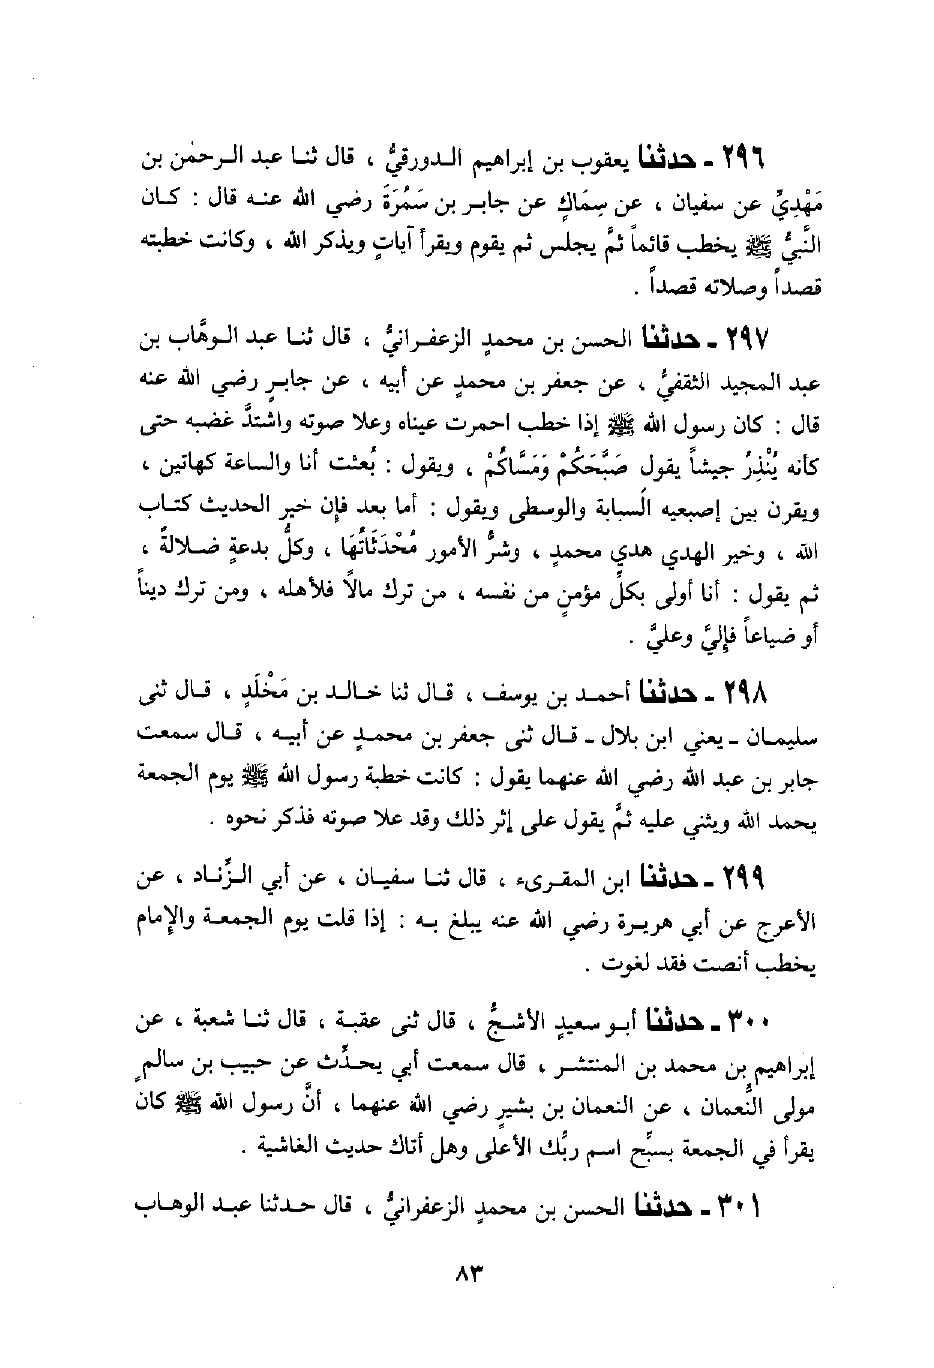 ٢٩٦ - حدثنا يعقوب بن إبراهيم الدورقيُّ ، قال ثنا عبد الرحمٰن بن
مَهْديِّ عن سفيان ، عن سِمَاكٍ عن جابر بن سَمُرَةَ رضي الله عنه قال : كان
النَّبيُّ ﷺ يخطب قائماً ثمَّ يجلس ثم يقوم ويقرأ آياتٍ ويذكر الله ، وكانت خطبته
قصداً وصلاته قصداً .
٢٩٧ - حدثنا الحسن بن محمدٍ الزعفرانيُّ ، قال ثنا عبد الوهَّاب بن
عبد المجيد الثقفيُّ ، عن جعفر بن محمدٍ عن أبيه ، عن جابرٍ رضي الله عنه
قال : كان رسول الله ﷺ إذا خطب احمرت عيناه وعلا صوته واشتدَّ غضبه حتى
كأنه يُنْذِرُ جيشاً يقول صَبَّحَكُمْ وَمَسَّاكُمْ ، ويقول : بُعثت أنا والساعة كهاتين ،
ويقرن بين إصبعيه السَبابة والوسطى ويقول : أما بعد فإن خير الحديث كتاب
الله ، وخير الهدي هدي محمدٍ ، وشرُّ الأمور مُحْدَثَاتُهَا ، وكلُّ بدعةٍ ضلالةٌ ،
ثم يقول : أنا أولى بكلِّ مؤمنٍ من نفسه ، من ترك مالاً فلأهله ، ومن ترك ديناً
أو ضياعاً فإليَّ وعليَّ .
٢٩٨ - حدثنا أحمد بن يوسف ، قال ثنا خالد بن مَخْلَدٍ ، قال ثنى
سليمان - يعني ابن بلال - قال ثنى جعفر بن محمدٍ عن أبيه ، قال سمعت
جابر بن عبد الله رضي الله عنهما يقول : كانت خطبة رسول الله ﷺ يوم الجمعة
يحمد الله ويثني عليه ثمَّ يقول على إثر ذلك وقد علا صوته فذكر نحوه .
٢٩٩ - حدثنا ابن المقرىء ، قال ثنا سفيان ، عن أبي الزِّناد ، عن
الأعرج عن أبي هريرة رضي الله عنه يبلغ به : إذا قلت يوم الجمعة والإمام
يخطب أنصت فقد لغوت .
٣٠٠ - حدثنا أبو سعيدٍ الأشجُّ ، قال ثنى عقبة ، قال ثنا شعبة ، عن
إبراهيم بن محمد بن المنتشر ، قال سمعت أبي يحدِّث عن حبيب بن سالمٍ
مولى النُّعمان ، عن النعمان بن بشيرٍ رضي الله عنهما ، أنَّ رسول الله ﷺ كان
يقرأ في الجمعة بسبِّح اسم ربِّك الأعلى وهل أتاك حديث الغاشية .
٣٠١ - حدثنا الحسن بن محمدٍ الزعفرانيُّ ، قال حدثنا عبد الوهاب
٨٣